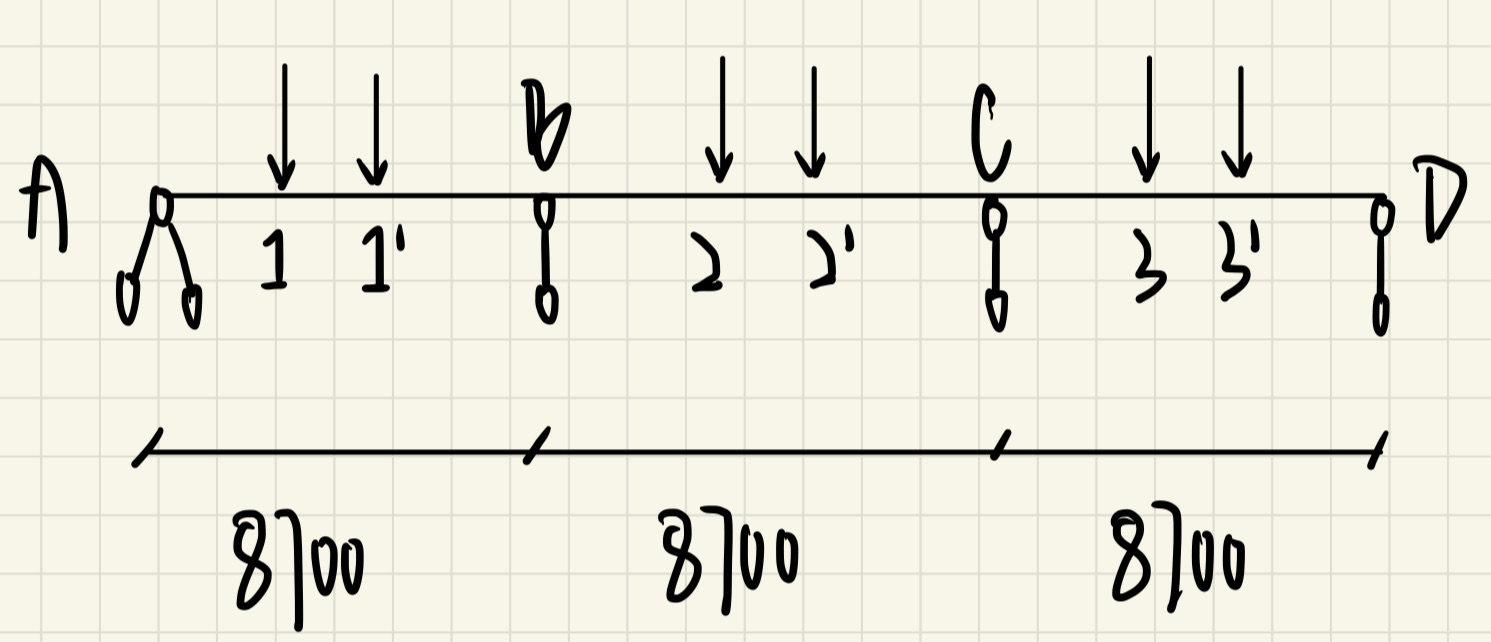 A B C D
1 1' 2 2' 3 3'
8700 8700 8700